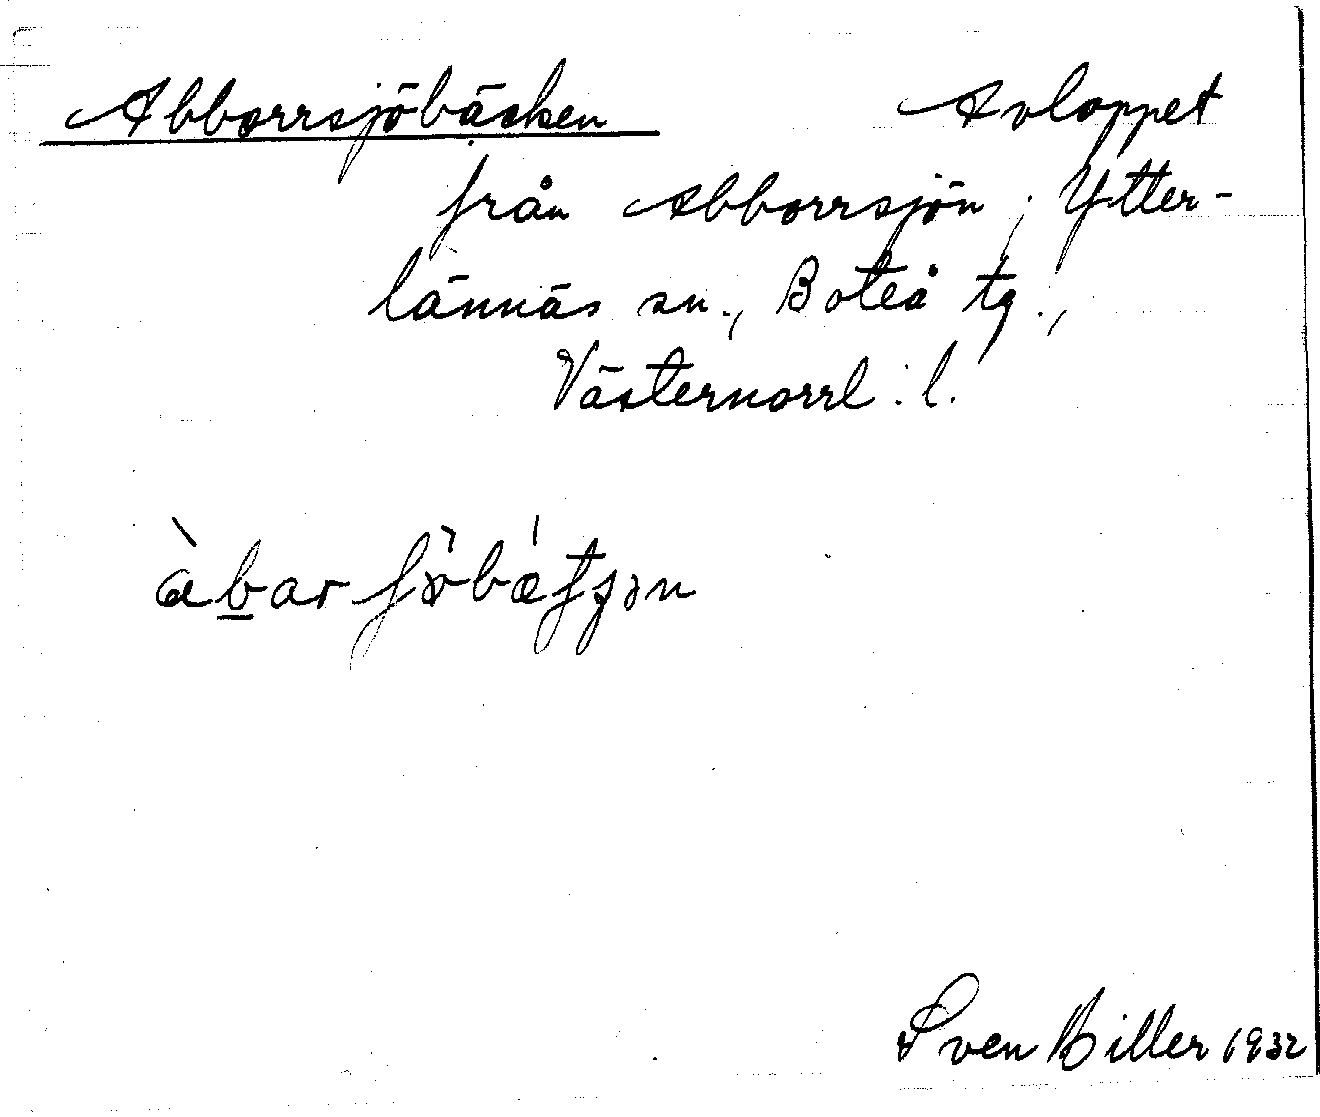 Abborrsjöbäcken Avloppet
från Abborrsjön, Ytter-
lännäs sn., Boteå tg.,
Västernorrl. l.
Sven Biller 1932